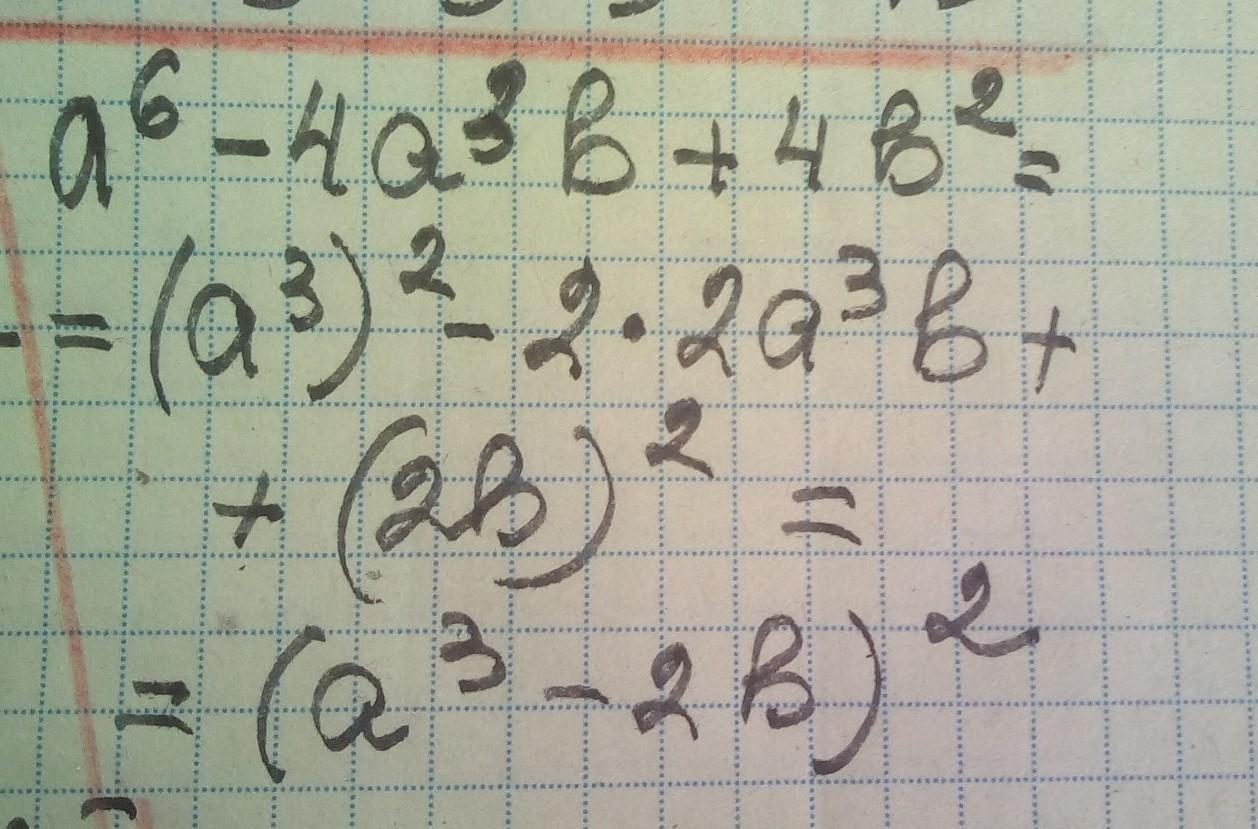 a⁶ - 4a³b + 4b² =
= (a³)² - 2·2a³b +
+ (2b)² =
= (a³ - 2b)²